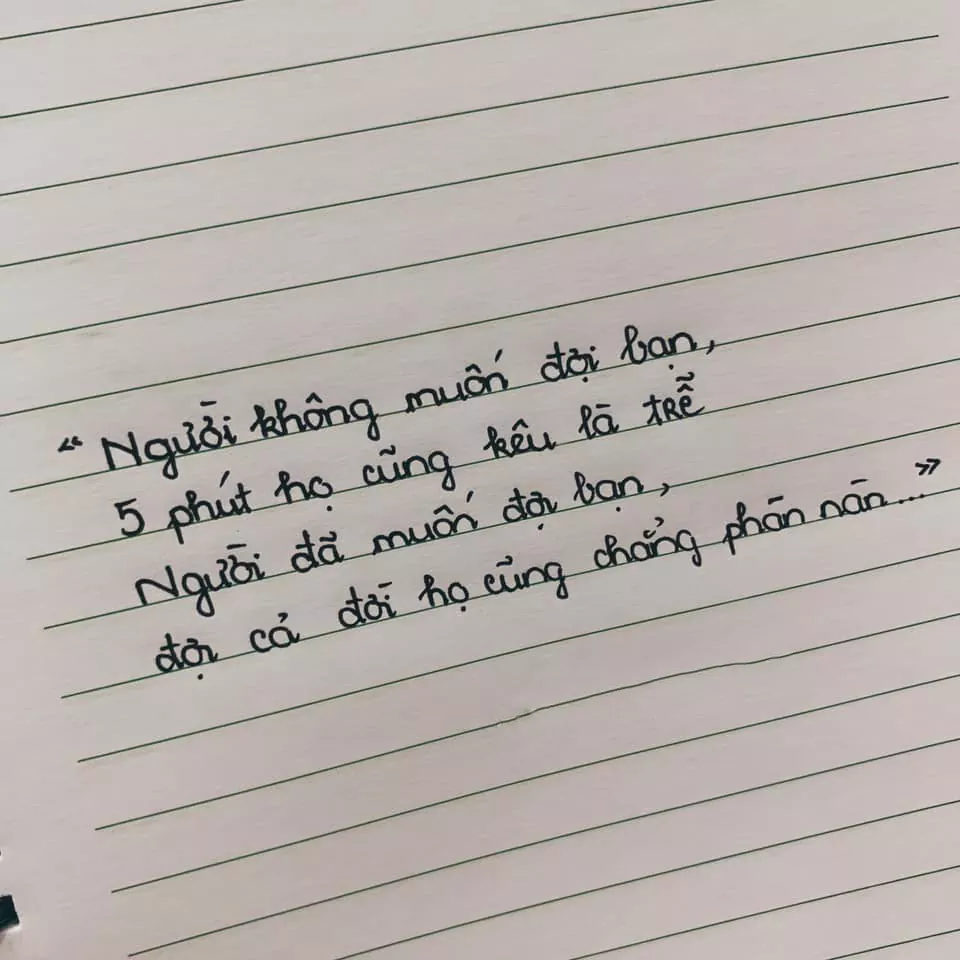 “ Người không muốn đợi bạn,
5 phút họ cũng kêu là trễ
Người đã muốn đợi bạn,
đợi cả đời họ cũng chẳng phàn nàn...”